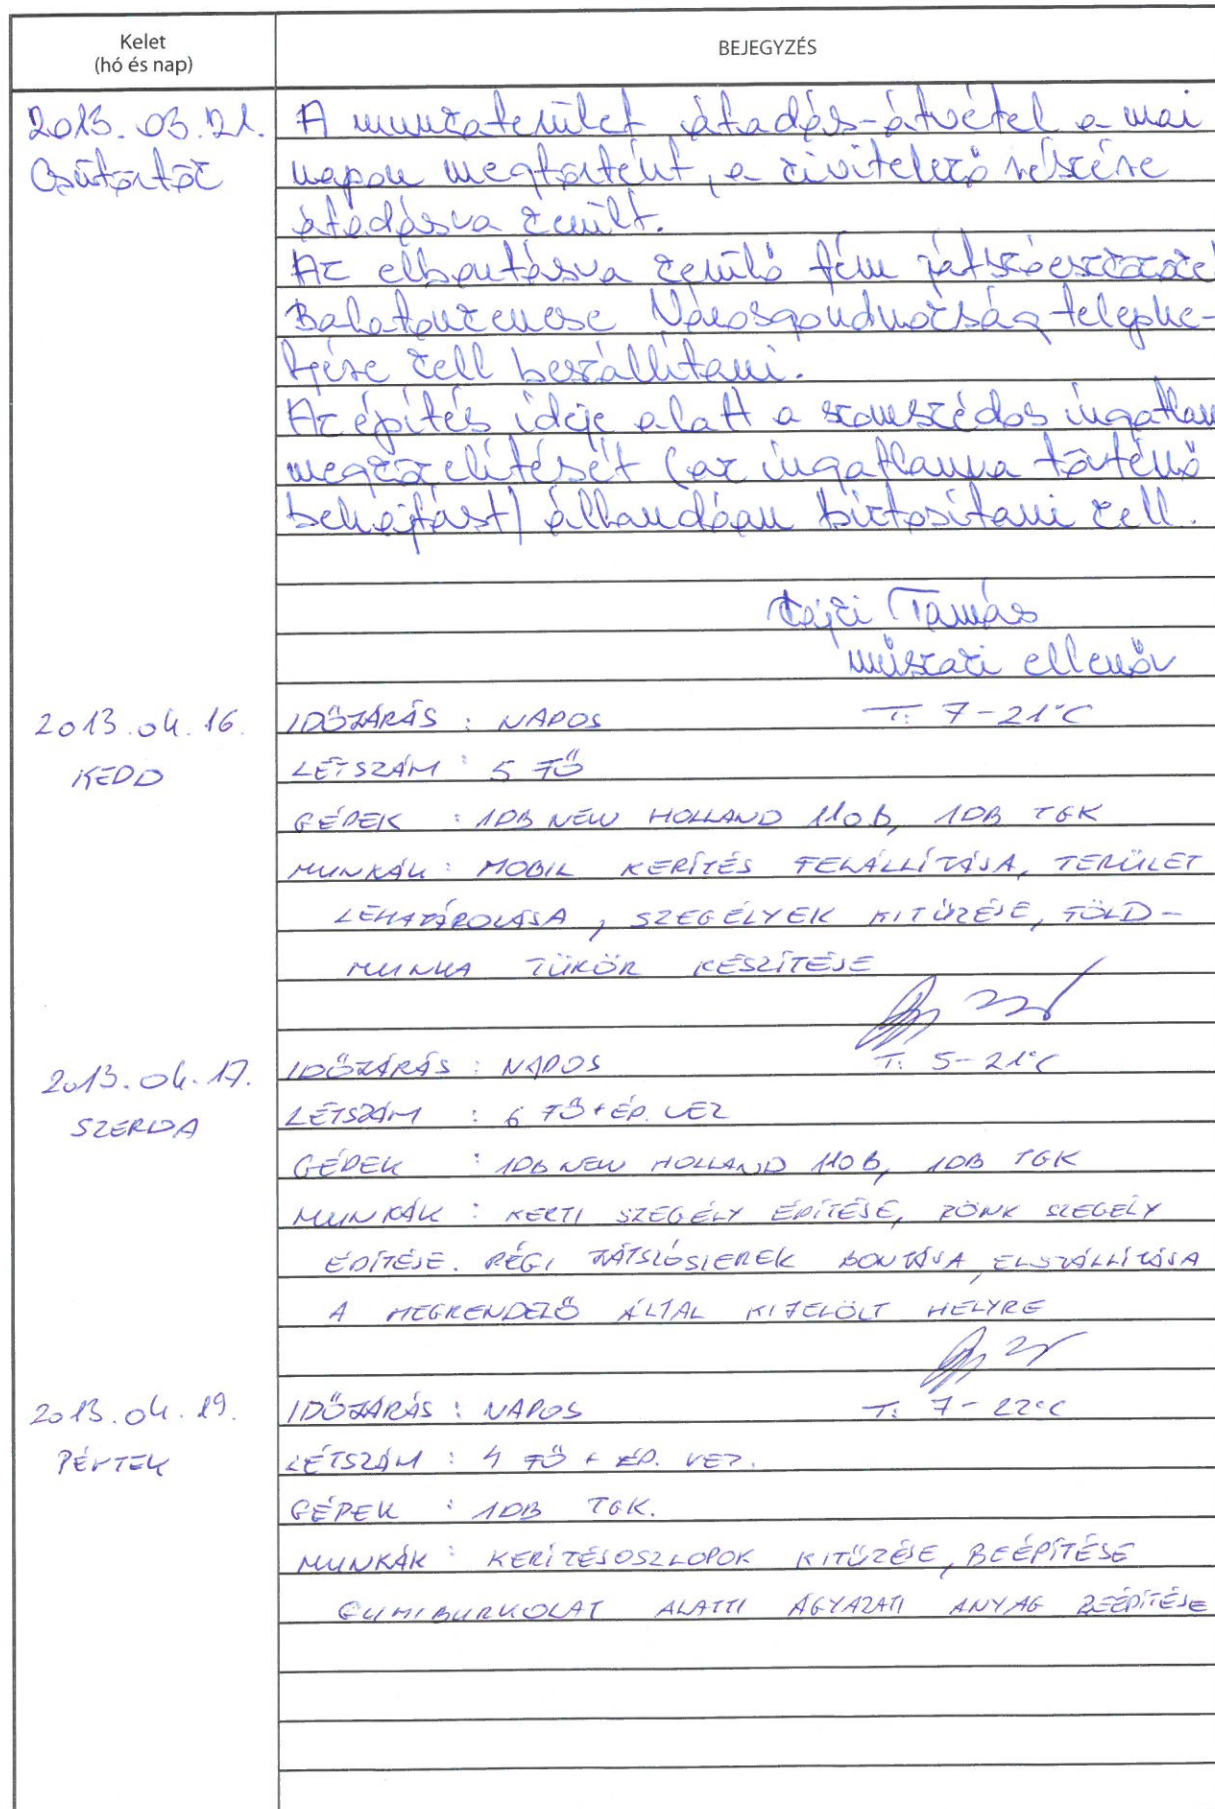 Kelet
(hó és nap)
BEJEGYZÉS
2013. 03. 21.
Csütörtök
A munkaterület átadás-átvétel a mai
napon megtörtént, a kivitelező részére
átadásra került.
Az elbontásra kerülő fém játszóeszközöke
Balatonkenese Városgondnokság telephe-
lyére kell beszállítani.
Az építés ideje alatt a szomszédos ingatlan
megközelítését (az ingatlanra történő
behajtást) állandóan biztosítani kell.
Tamás
műszaki ellenőr
2013.04.16.
KEDD
IDŐJÁRÁS : NAPOS T: 7-21°C
LÉTSZÁM : 5 FŐ
GÉPEK : 1DB NEW HOLLAND 110B, 1DB TGK
MUNKÁK : MOBIL KERÍTÉS FELÁLLÍTÁSA, TERÜLET
LEHATÁROLÁSA, SZEGÉLYEK KITŰZÉSE, FÖLD-
MUNKA TÜKÖR KÉSZÍTÉSE
2013.04.17.
SZERDA
IDŐJÁRÁS : NAPOS T: 5-21°C
LÉTSZÁM : 6 FŐ + ÉP. VEZ
GÉPEK : 1DB NEW HOLLAND 110B, 1DB TGK
MUNKÁK : KERTI SZEGÉLY ÉPÍTÉSE, RÖNK SZEGÉLY
ÉPÍTÉSE. RÉGI JÁTSZÓSZEREK BONTÁSA, ELSZÁLLÍTÁSA
A MEGRENDELŐ ÁLTAL KIJELÖLT HELYRE
2013.04.19.
PÉNTEK
IDŐJÁRÁS : NAPOS T: 7-22°C
LÉTSZÁM : 4 FŐ + ÉP. VEZ.
GÉPEK : 1DB TGK.
MUNKÁK : KERÍTÉSOSZLOPOK KITŰZÉSE, BEÉPÍTÉSE
GUMIBURKOLAT ALATTI ÁGYAZATI ANYAG BEÉPÍTÉSE